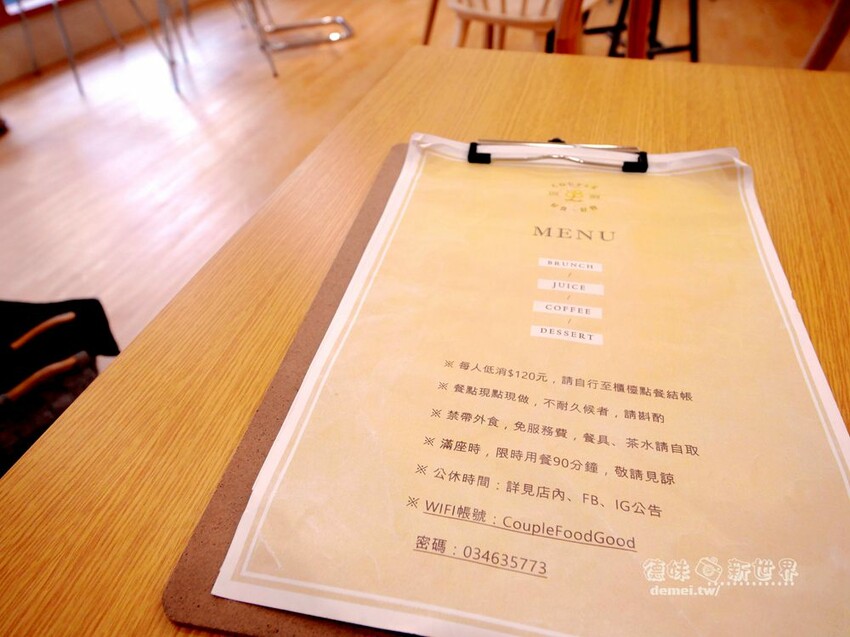 MENU
BRUNCH
JUICE
COFFEE
DESSERT
※ 每人低消$120元，請自行至櫃檯點餐結帳
※ 餐點現點現做，不耐久候者，請斟酌
※ 禁帶外食，免服務費，餐具、茶水請自取
※ 滿座時，限時用餐90分鐘，敬請見諒
※ 公休時間：詳見店內、FB、IG公告
※ WIFI帳號：CoupleFoodGood
密碼：034635773
德味 新世界
demei.tw/